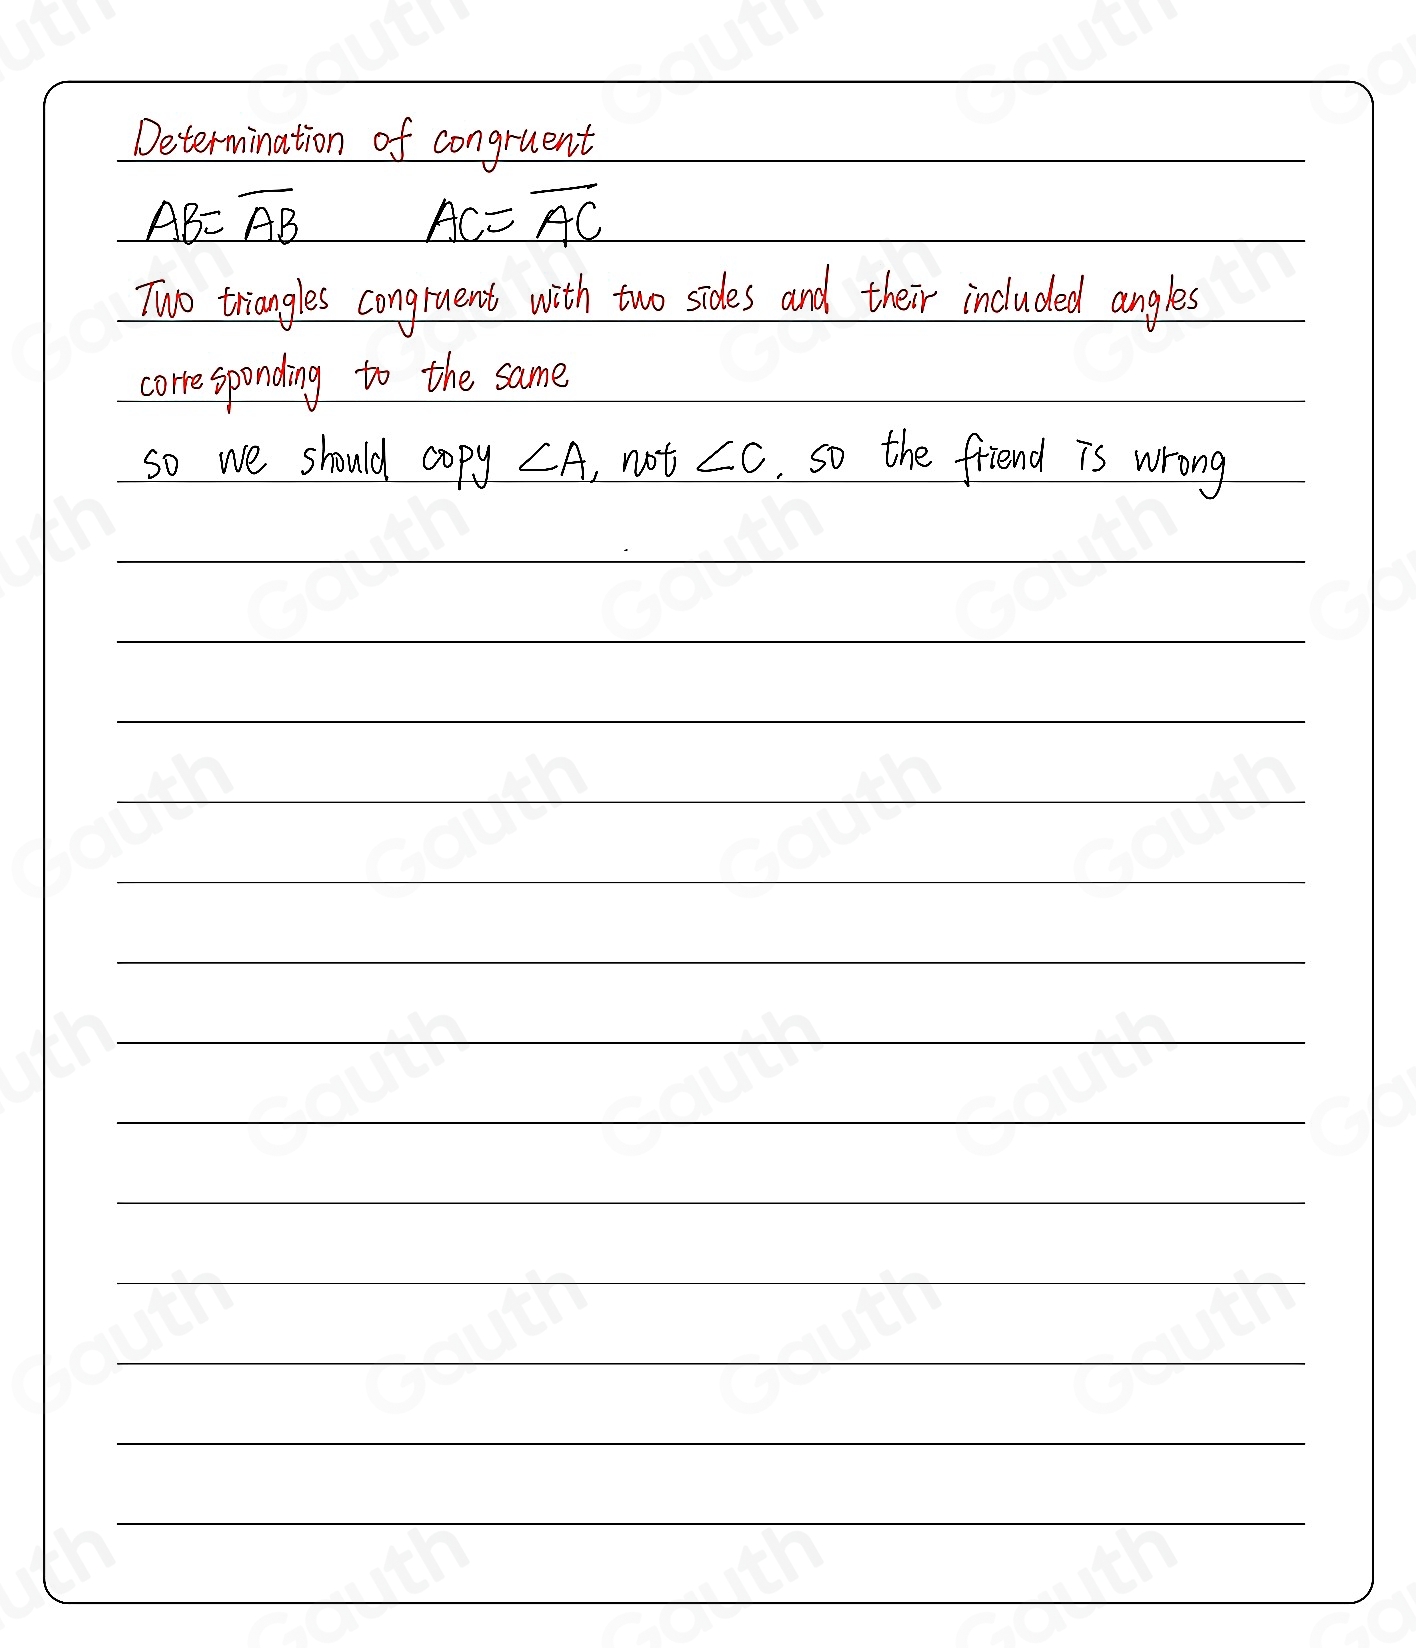 Determination of congruent
AB= \overline{AB} AC= \overline{AC}
Two triangles congruent with two sides and their included angles
corresponding to the same
so we should copy ∠A, not ∠C. so the friend is wrong